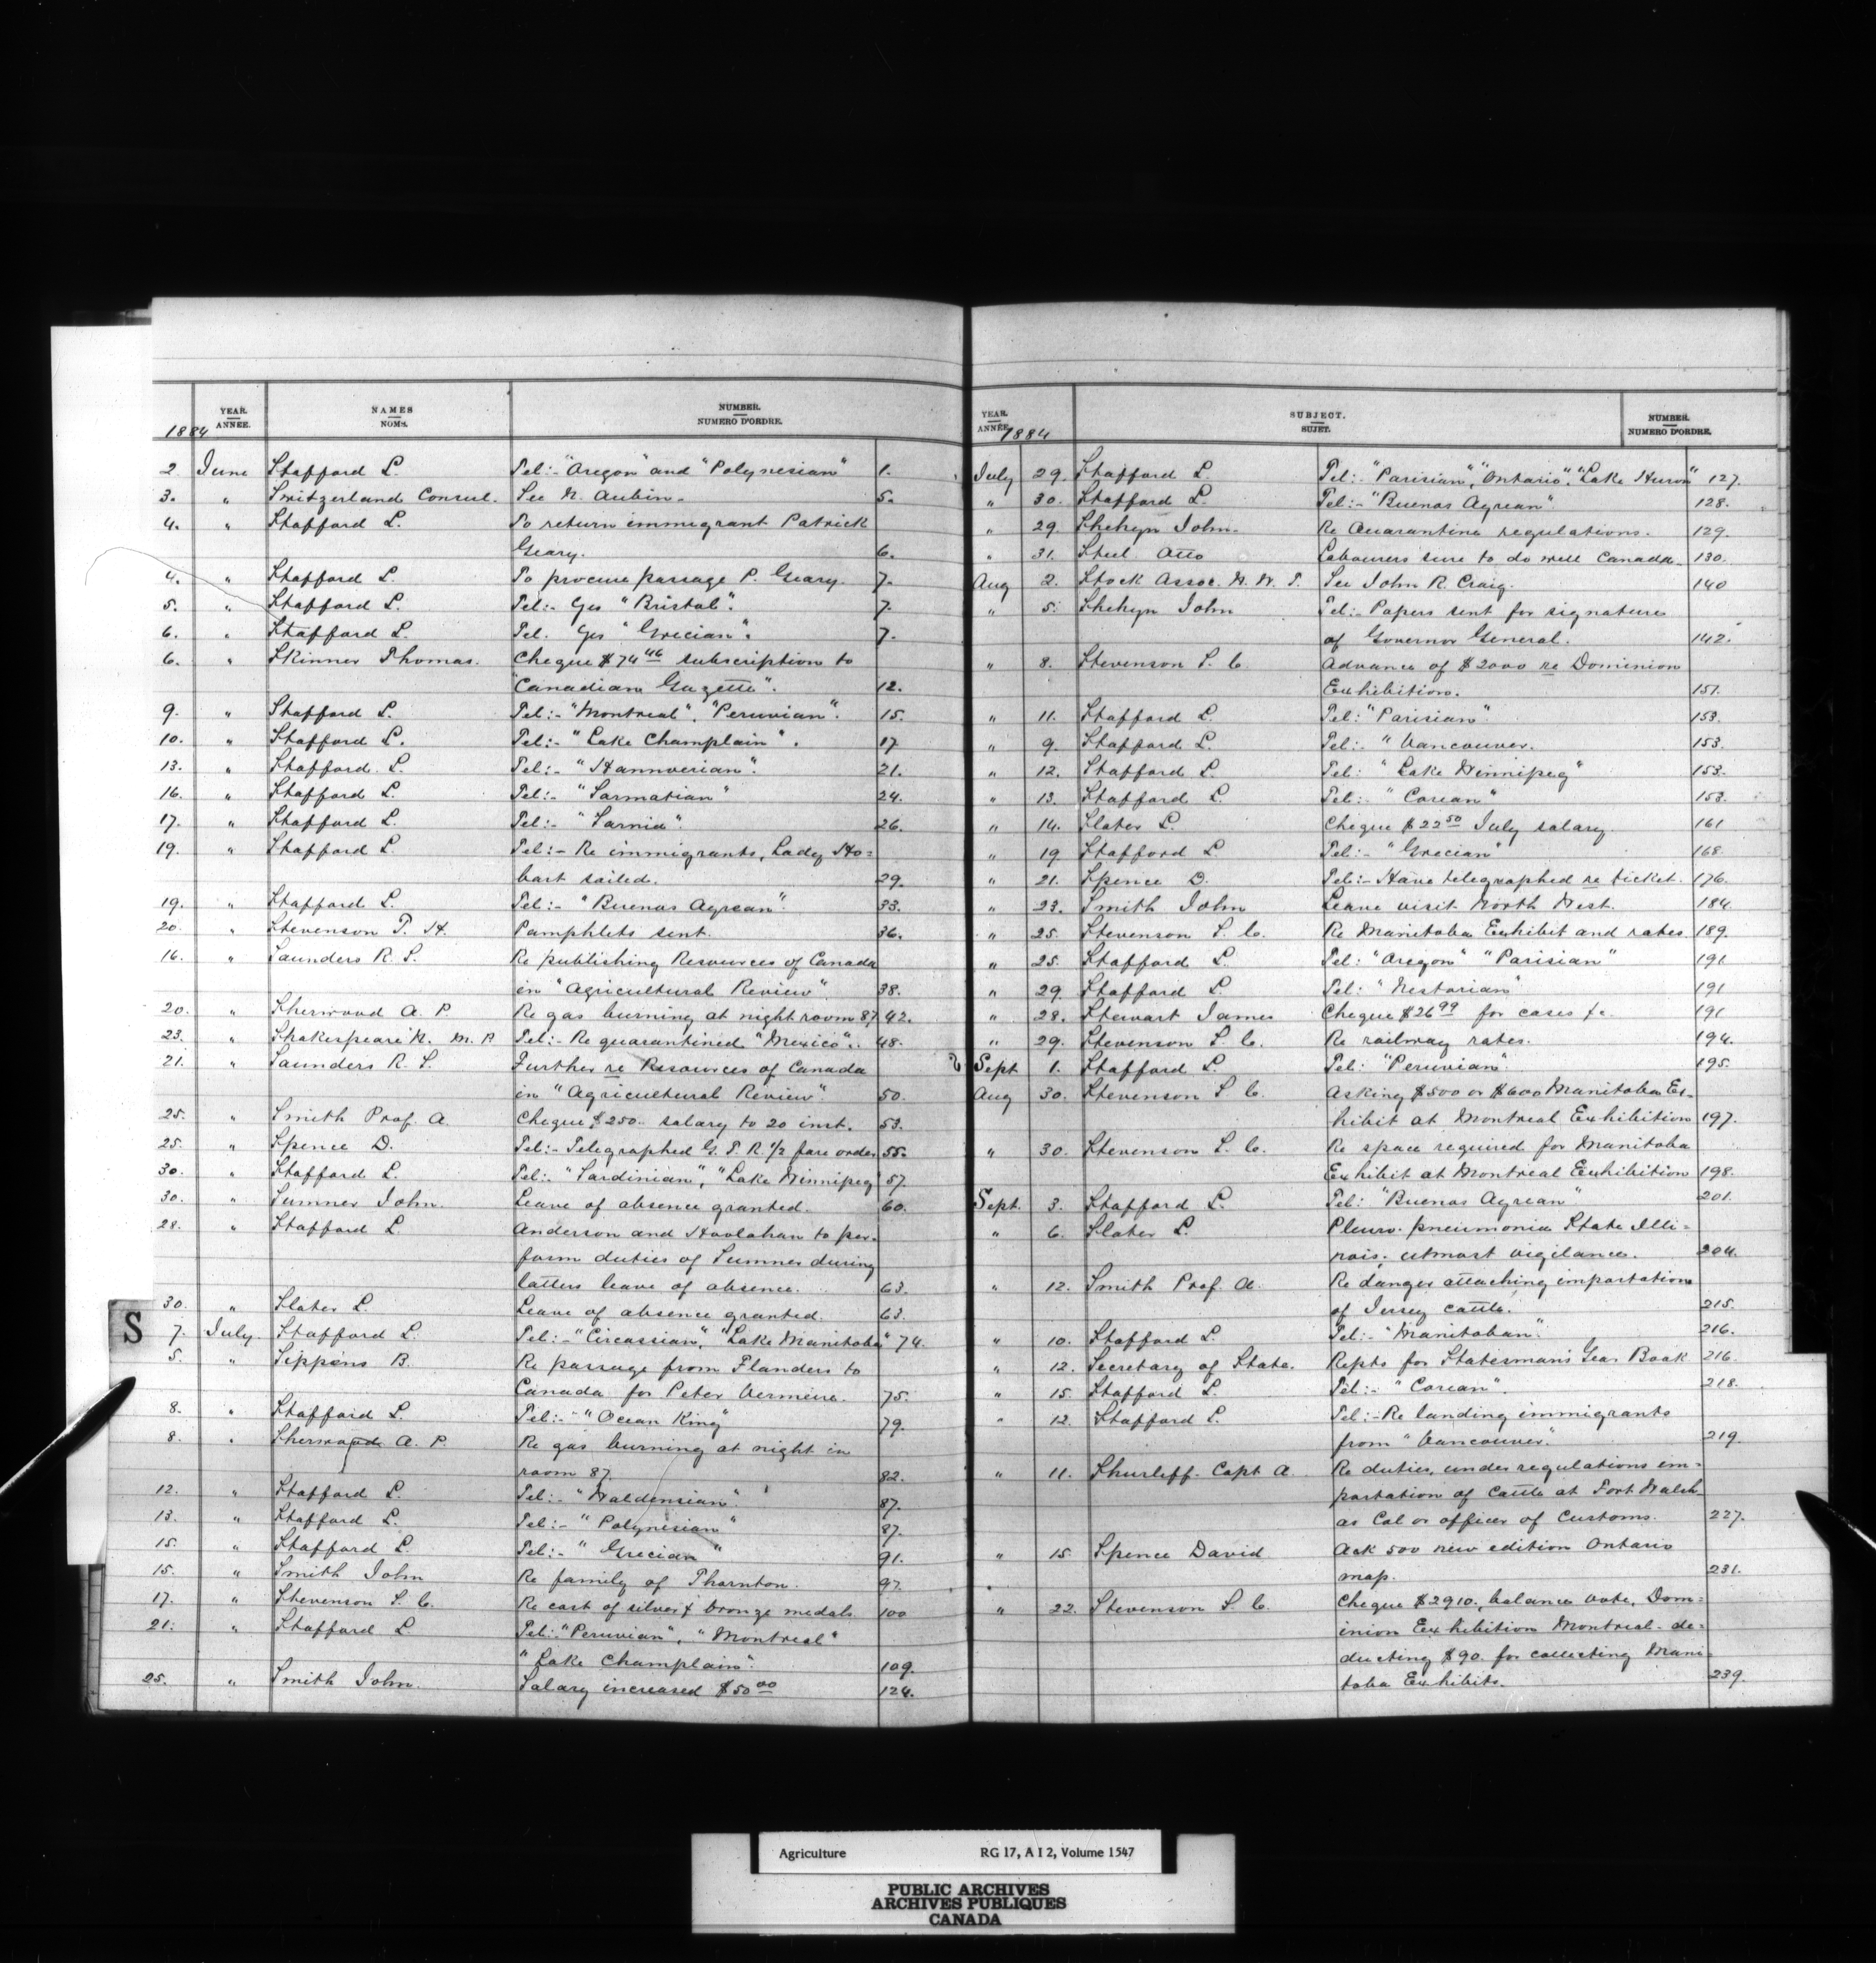 YEAR. ANNÉE. NAMES NOMS. NUMBER. NUMERO D'ORDRE.
1884
2. June Stafford L. Tel:- "Oregon" and "Polynesian" 1.
3. " Switzerland Consul. See N. Aubin. 5.
4. " Stafford L. To return immigrant Patrick
Geary. 6.
4. " Stafford L. To procure passage P. Geary. 7.
5. " Stafford L. Tel:- Yes "Bristol". 7.
6. " Stafford L. Tel. Yes "Grecian". 7.
6. " Skinner Thomas. Cheque $74 46 subscription to
"Canadian Gazette". 12.
9. " Stafford L. Tel:- "Montreal", "Peruvian". 15.
10. " Stafford L. Tel:- "Lake Champlain". 17
13. " Stafford L. Tel:- "Hannoverian". 21.
16. " Stafford L. Tel:- "Sarmatian" 24.
17. " Stafford L. Tel:- "Sarnia". 26.
19. " Stafford L. Tel:- Re immigrants, Lady Ho=
bart sailed. 29.
19. " Stafford L. Tel:- "Buenos Ayrean". 33.
20. " Stevenson T. H. Pamphlets sent. 36.
16. " Saunders R. S. Re publishing Resources of Canada
in "Agricultural Review". 38.
20. " Sherwood A. P. Re gas burning at night room 87 42.
23. " Shakespeare N. M. P. Tel:- Re quarantined "Mexico". 48.
21. " Saunders R. S. Further re Resources of Canada
in "Agricultural Review". 50.
25. " Smith Prof. A. Cheque $250. salary to 20 inst. 53.
25. " Spence D. Tel:- Telegraphed G. T. R. 1/2 fare order 55.
30. " Stafford L. Tel:- "Sardinian", "Lake Winnipeg" 57
30. " Sumner John. Leave of absence granted. 60.
28. " Stafford L. Anderson and Hoolahan to per-
form duties of Sumner during
latters leave of absence. 63.
30. " Slater L. Leave of absence granted. 63.
S
7. July. Stafford L. Tel:- "Circassian", "Lake Manitoba" 74.
5. " Sippens B. Re passage from Flanders to
Canada for Peter Vermeire. 75.
8. " Stafford L. Tel:- "Ocean King" 79.
8. " Sherwood A. P. Re gas burning at night in
room 87. 82.
12. " Stafford L. Tel:- "Waldensian". 87.
13. " Stafford L. Tel:- "Polynesian" 87.
15. " Stafford L. Tel:- "Grecian" 91.
15. " Smith John Re family of Thornton. 97.
17. " Stevenson S. C. Re cost of silver & bronze medals 100
21. " Stafford L. Tel: "Peruvian", "Montreal"
"Lake Champlain". 109.
25. " Smith John. Salary increased $50 00 124.
YEAR. ANNÉE. SUBJECT. SUJET. NUMBER. NUMERO D'ORDRE.
1884
July 29. Stafford L. Tel:- "Parisian", "Ontario", "Lake Huron" 127.
" 30. Stafford L. Tel:- "Buenos Ayrean". 128.
" 29. Shehyn John. Re Quarantine regulations. 129.
" 31. Steel Otto Labourers sure to do well Canada. 130.
Aug 2. Stock Assoc. N. W. T. See John R. Craig. 140
" 5. Shehyn John Tel:- Papers sent for signature
of Governor General. 142.
" 8. Stevenson S. C. Advance of $2000 re Dominion
Exhibition. 151.
" 11. Stafford L. Tel: "Parisian". 153.
" 9. Stafford L. Tel:- "Vancouver. 153.
" 12. Stafford L. Tel: "Lake Winnipeg" 153.
" 13. Stafford L. Tel: "Corean" 153.
" 14. Slater L. Cheque $22 50 July salary. 161
" 19 Stafford L Tel:- "Grecian" 168.
" 21. Spence D. Tel:- Have telegraphed re ticket. 176.
" 23. Smith John Leave visit North West. 184.
" 25. Stevenson S. C. Re Manitoba Exhibit and rates. 189.
" 25. Stafford L Tel: "Oregon" "Parisian" 191
" 29. Stafford L Tel: "Nestorian" 191
" 28. Stewart James Cheque $26 99 for cases &c. 191
" 29. Stevenson S. C. Re railway rates. 194.
Sept 1. Stafford L. Tel: "Peruvian". 195.
Aug 30. Stevenson S C. Asking $500 or $600 Manitoba Ex-
hibit at Montreal Exhibition 197.
" 30. Stevenson S. C. Re space required for Manitoba
Exhibit at Montreal Exhibition 198.
Sept. 3. Stafford L. Tel: "Buenos Ayrean" 201.
" 6. Slater L. Pleuro-pneumonia State Illi=
nois. utmost vigilance. 204.
" 12. Smith Prof. A. Re danger attaching importation
of Jersey cattle. 215.
" 10. Stafford L. Tel:- "Manitoban". 216.
" 12. Secretary of State. Repts for Statesman's Year Book 216.
" 15. Stafford L. Tel:- "Corean". 218.
" 12. Stafford L. Tel:- Re landing immigrants
from "Vancouver". 219.
" 11. Shurleff Capt A. Re duties, under regulations im=
portation of Cattle at Fort Walsh
as Col or officer of Customs. 227.
" 15. Spence David Ask 500 new edition Ontario
map. 231.
" 22. Stevenson S. C. Cheque $2910., balance vote, Dom=
inion Exhibition Montreal - de=
ducting $90. for collecting Mani=
toba Exhibits. 239.
Agriculture RG 17, A I 2, Volume 1547
PUBLIC ARCHIVES
ARCHIVES PUBLIQUES
CANADA